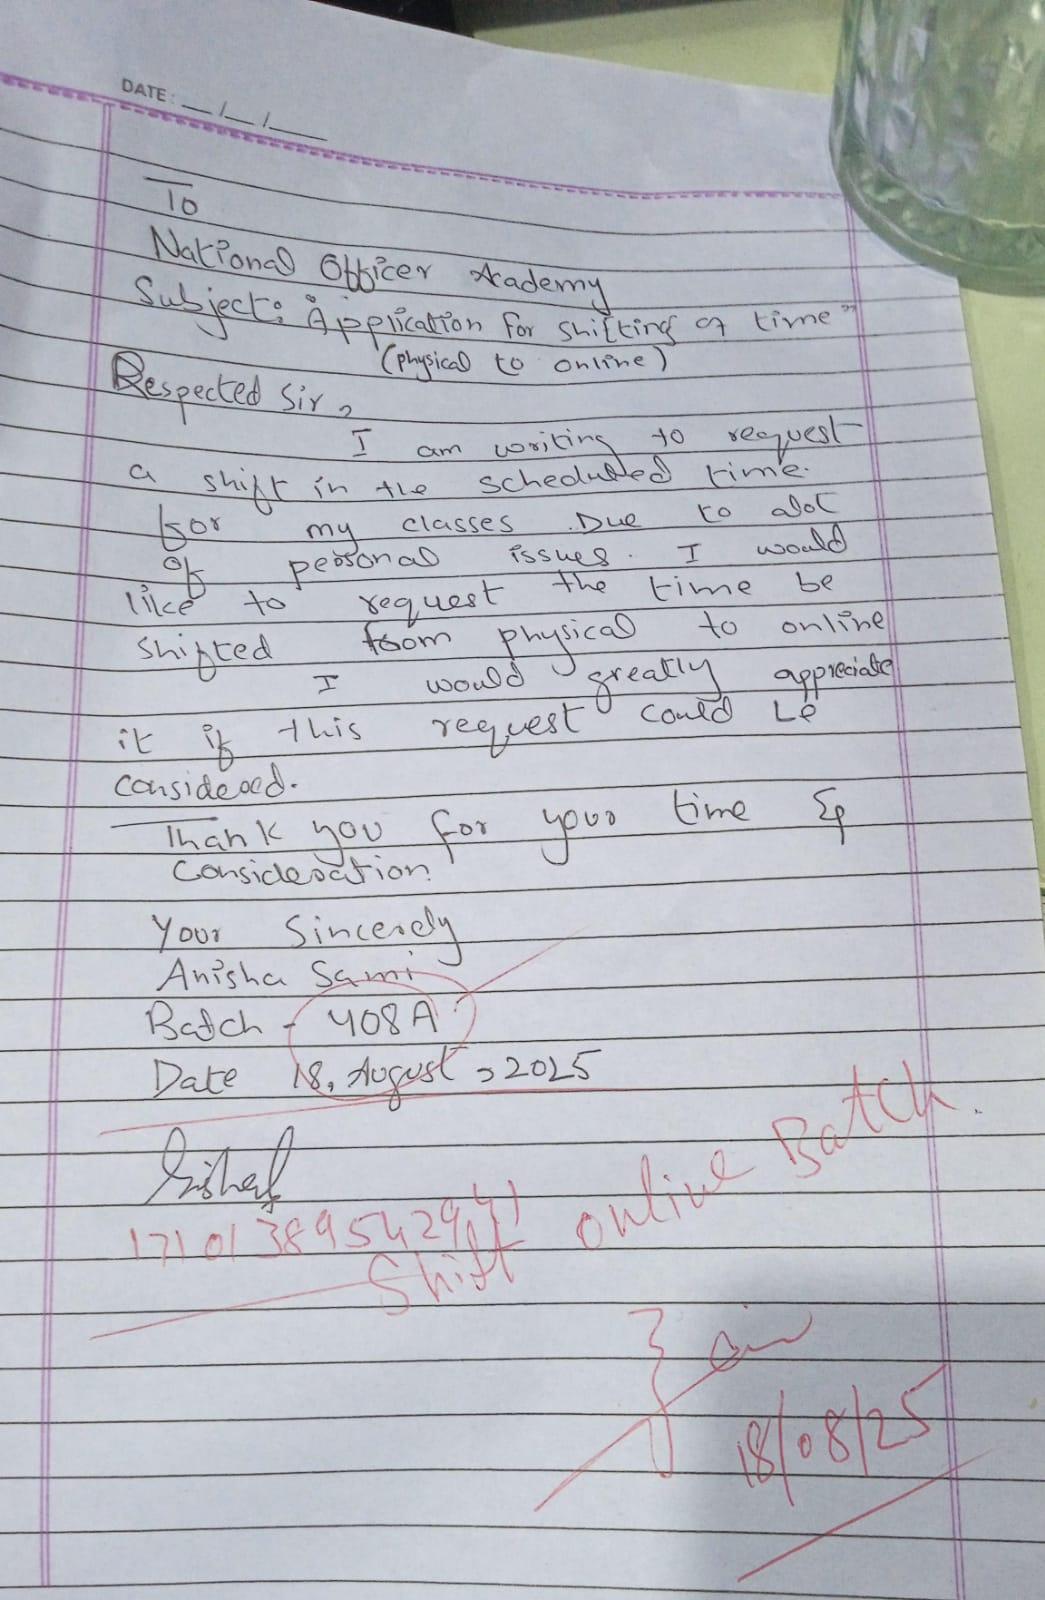 DATE: __/__/__
To
National Officer Academy
Subject: "Application for shifting of time"
(physical to online)
Respected Sir,
I am writing to request
a shift in the scheduled time.
for my classes. Due to alot
of personal issues. I would
like to request the time be
shifted from physical to online
I would greatly appreciate
it if this request could be
considered.
Thank you for your time &
Consideration.
Your Sincerely
Anisha Sami
Batch - 408A
Date 18, August, 2025
1710138954294
Shift online Batch.
18/08/25